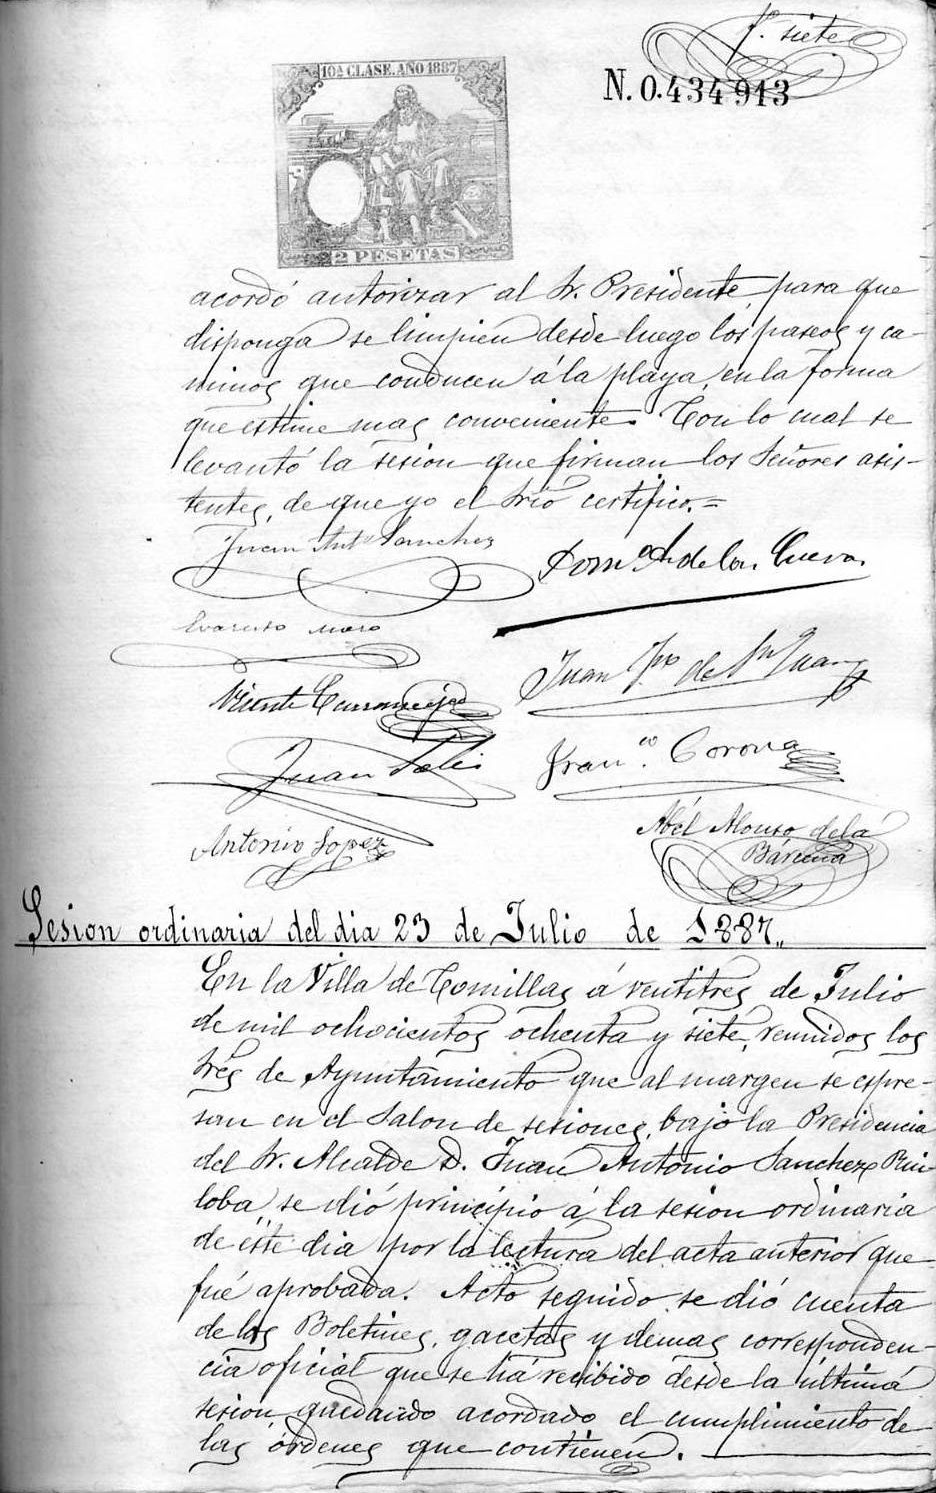 f. siete
10ª CLASE. AÑO 1887
N. 0.434913
2 PESETAS
acordó autorizar al Sr. Presidente para que
disponga se limpien desde luego los paseos y ca-
minos que conducen á la playa, en la forma
que estime mas conveniente. Con lo cual se
levantó la sesion que firman los Señores asis-
tentes, de que yo el Srio certifico.=
Juan Antº Sanchez
Domº de la Cueva.
Evaristo Moro
Juan de Sn Juan
Vicente
Juan Solis
Franco. Corona
Antonio Lopez
Abél Alonso de la
Bárcena
Sesion ordinaria del dia 23 de Julio de 1887.,
En la Villa de Comillas á ventitres de Julio
de mil ochocientos ochenta y siete, reunidos los
Sres de Ayuntamiento que al margen se espre-
san en el Salon de sesiones, bajo la Presidencia
del Sr. Alcalde D. Juan Antonio Sanchez Rui-
loba se dió principio á la sesion ordinaria
de este dia por la lectura del acta anterior que
fué aprobada. Acto seguido se dió cuenta
de los Boletines, gacetas y demas corresponden-
cia oficial que se há recibido desde la última
sesion quedando acordado el cumplimiento de
las órdenes que contienen.